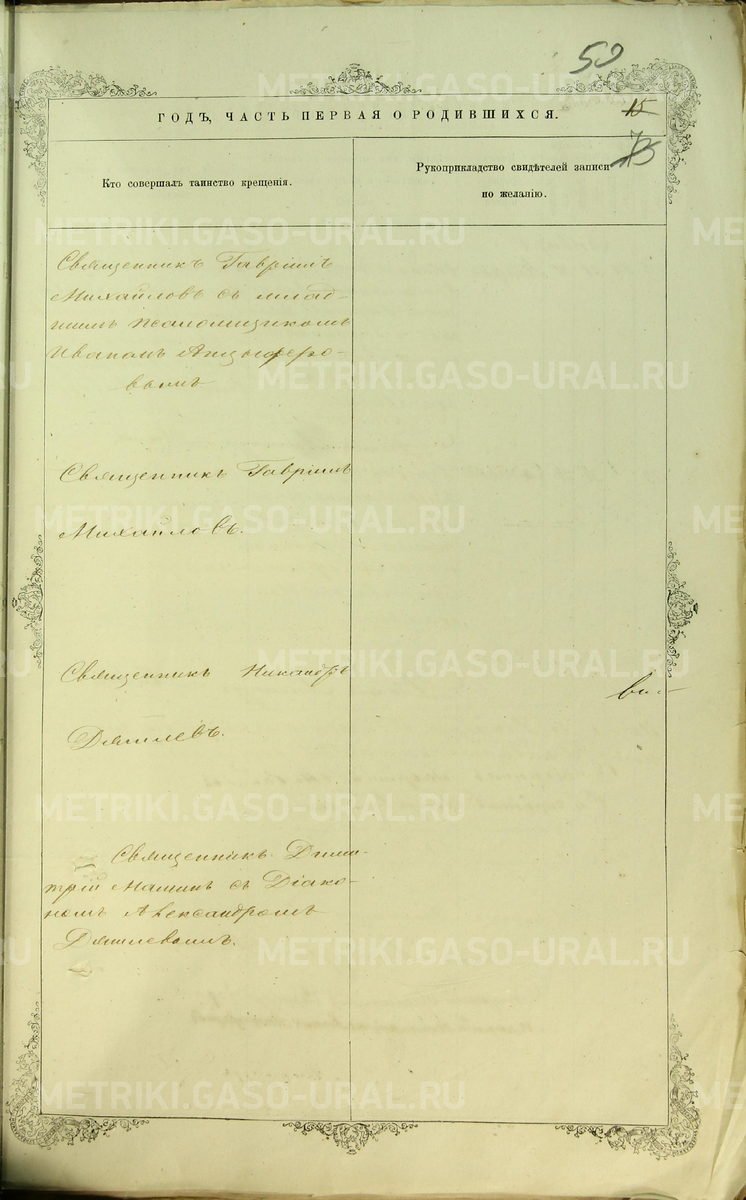 50
ГОДЪ, ЧАСТЬ ПЕРВАЯ О РОДИВШИХСЯ.
15
75
Кто совершалъ таинство крещенія.
Рукоприкладство свидѣтелей записи
по желанію.
Священникъ Гавріилъ
Михайловъ съ млад-
шимъ псаломщикомъ
Иваномъ Анцыферо-
вымъ
Священникъ Гавріилъ
Михайловъ.
Священникъ Никандръ
Дягилевъ.
Священникъ Дими-
трій Машинъ съ Діако-
номъ Александромъ
Дягилевымъ.
METRIKI.GASO-URAL.RU